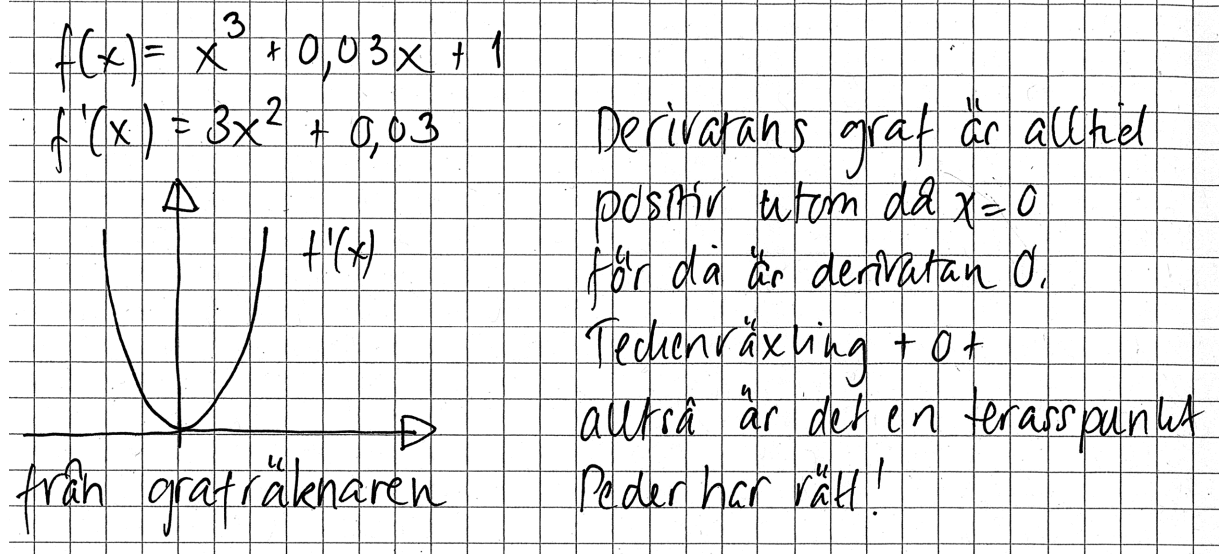 f(x) = x³ + 0,03x + 1
f'(x) = 3x² + 0,03
f'(x)
från grafräknaren
Derivatans graf är alltid
positiv utom då x=0
för då är derivatan 0.
Teckenväxling + 0 +
alltså är det en terasspunkt
Peder har rätt!